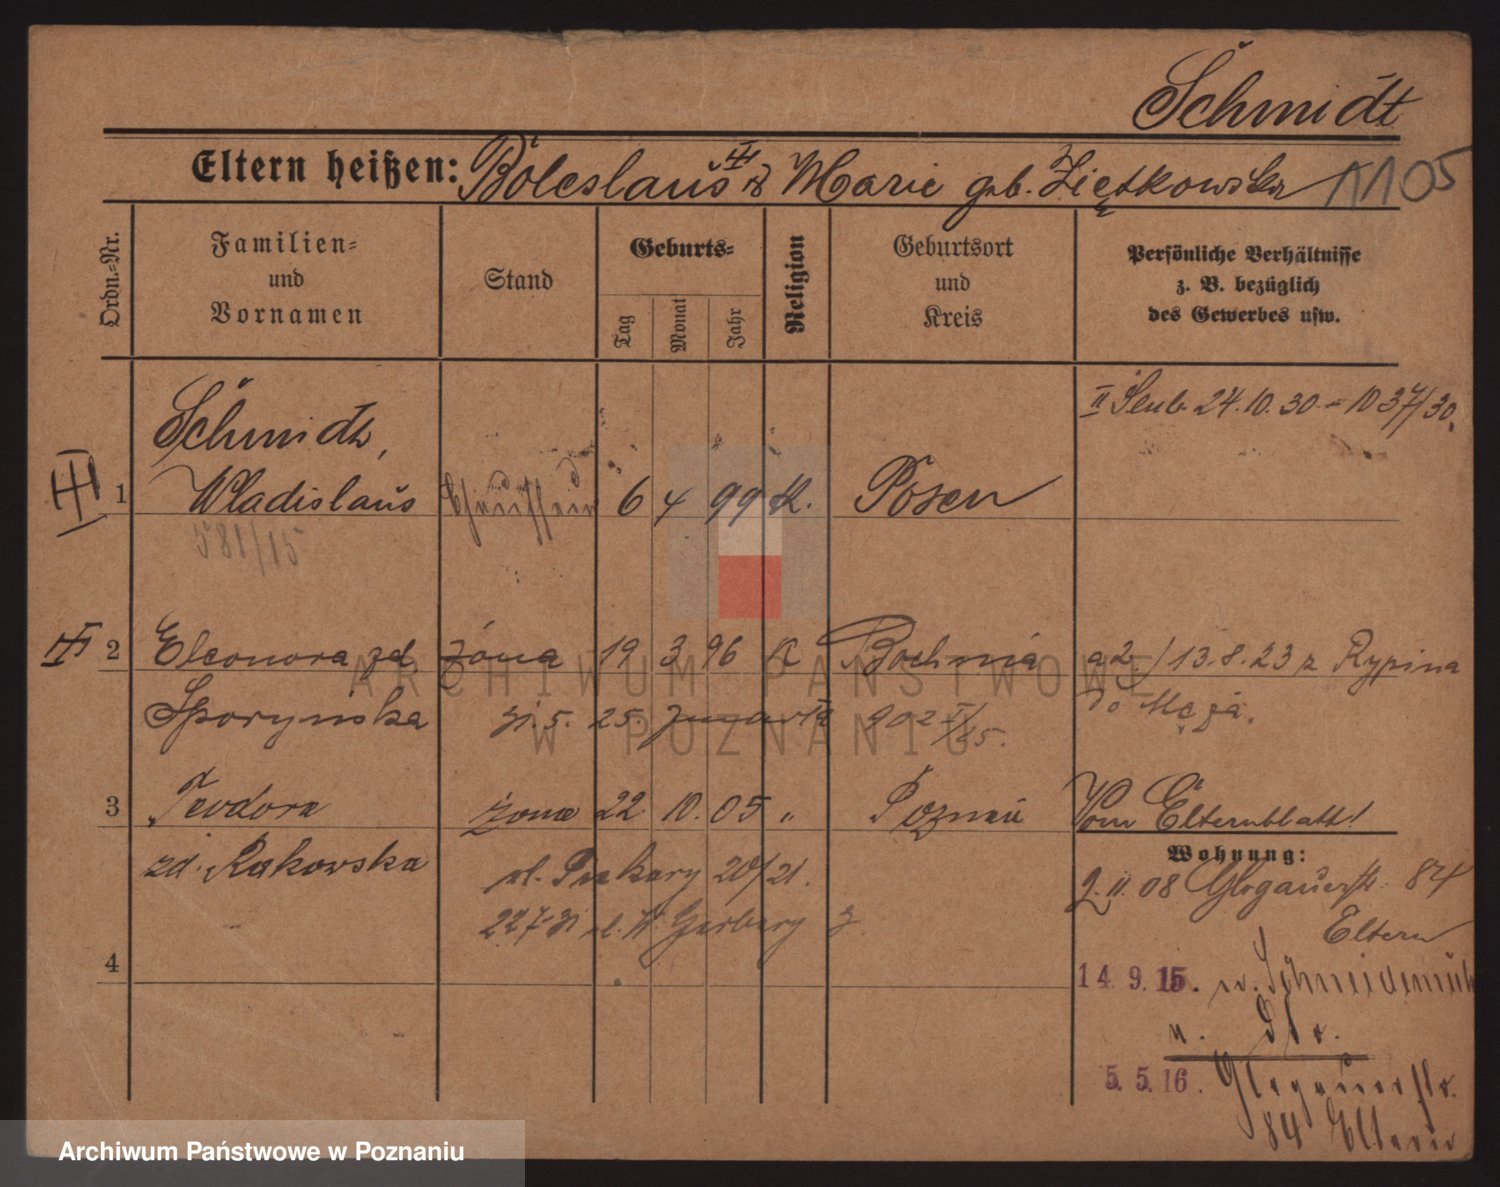 Schmidt
Eltern heißen: Boleslaus & Marie geb. Ziętkowska 1105
Ordn.-Nr.
Familien-
und
Vornamen
Stand
Geburts-
Tag
Monat
Jahr
Religion
Geburtsort
und
Kreis
Persönliche Verhältnisse
z. B. bezüglich
des Gewerbes usw.
II Slub. 24.10.30 = 1037/30.
Schmidt,
1 Wladislaus 6 4 99 K. Posen
581/15
2 Eleonora zd. żona 19 3 96 K Bochnia a 2/13.8.23 z Rypina
Sporyńska 25. 902 do Męża.
3 Teodora żona 22. 10. 05 " Poznań Vom Elternblatt!
zd. Rakowska ul. Piekary 20/21.
Wohnung:
2.11.08 Glogauerstr. 84
Eltern
ul. W. Garbary
4
14. 9. 15. n. Schneidemühl
5. 5. 16. Glogauerstr.
84 Eltern
ARCHIWUM PAŃSTWOWE
W POZNANIU
Archiwum Państwowe w Poznaniu